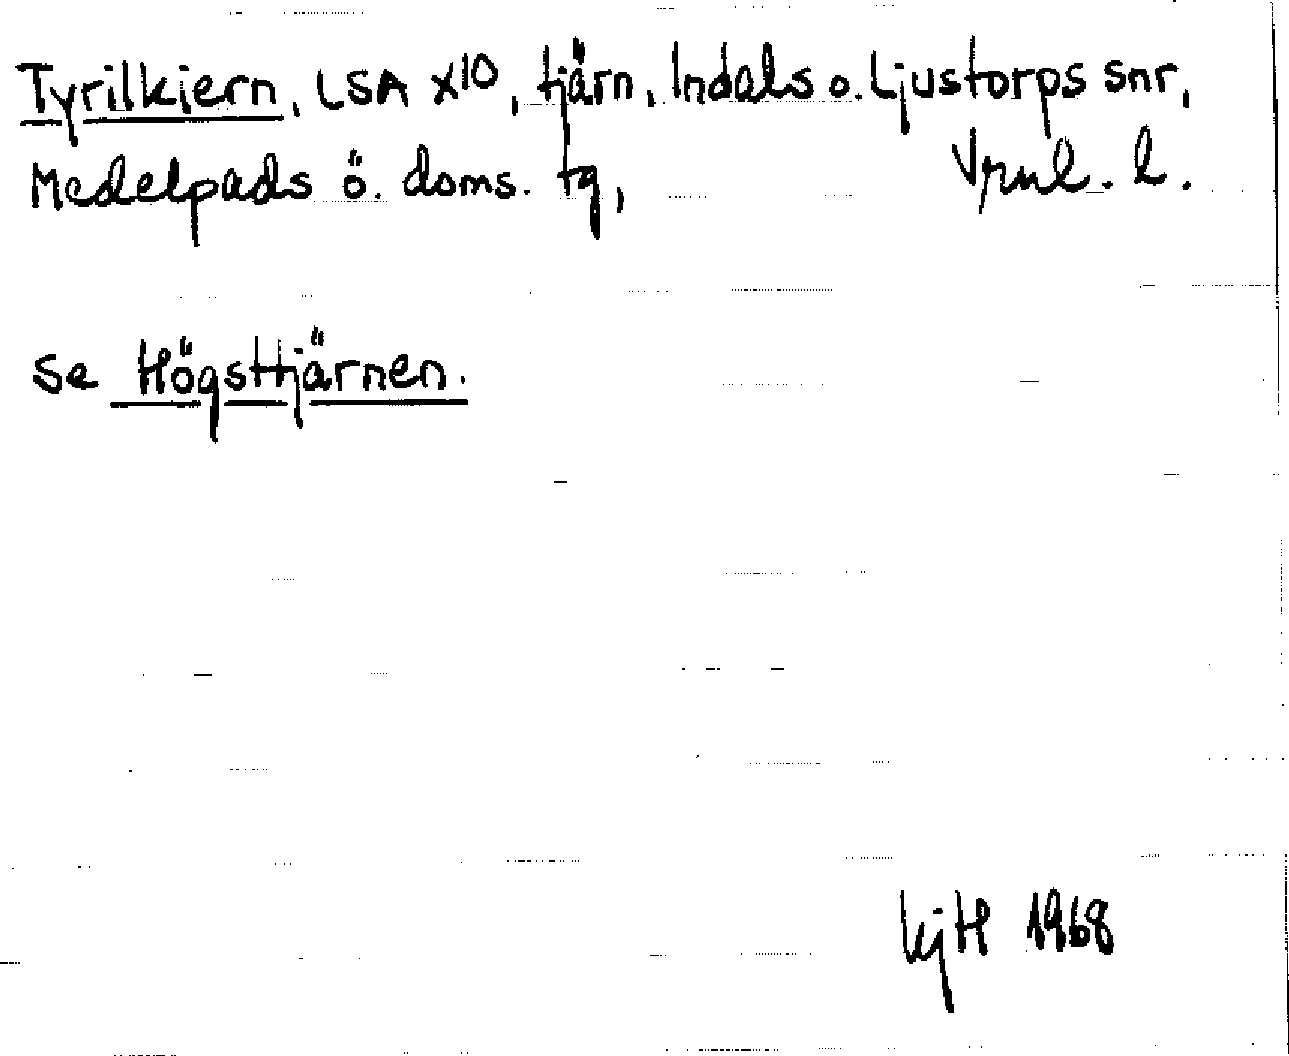 Tyrilkiern, LSA X10, tjärn, Indals o. Ljustorps snr,
Medelpads ö. doms. tg, Vrnl. l.
se Högsttjärnen.
1968